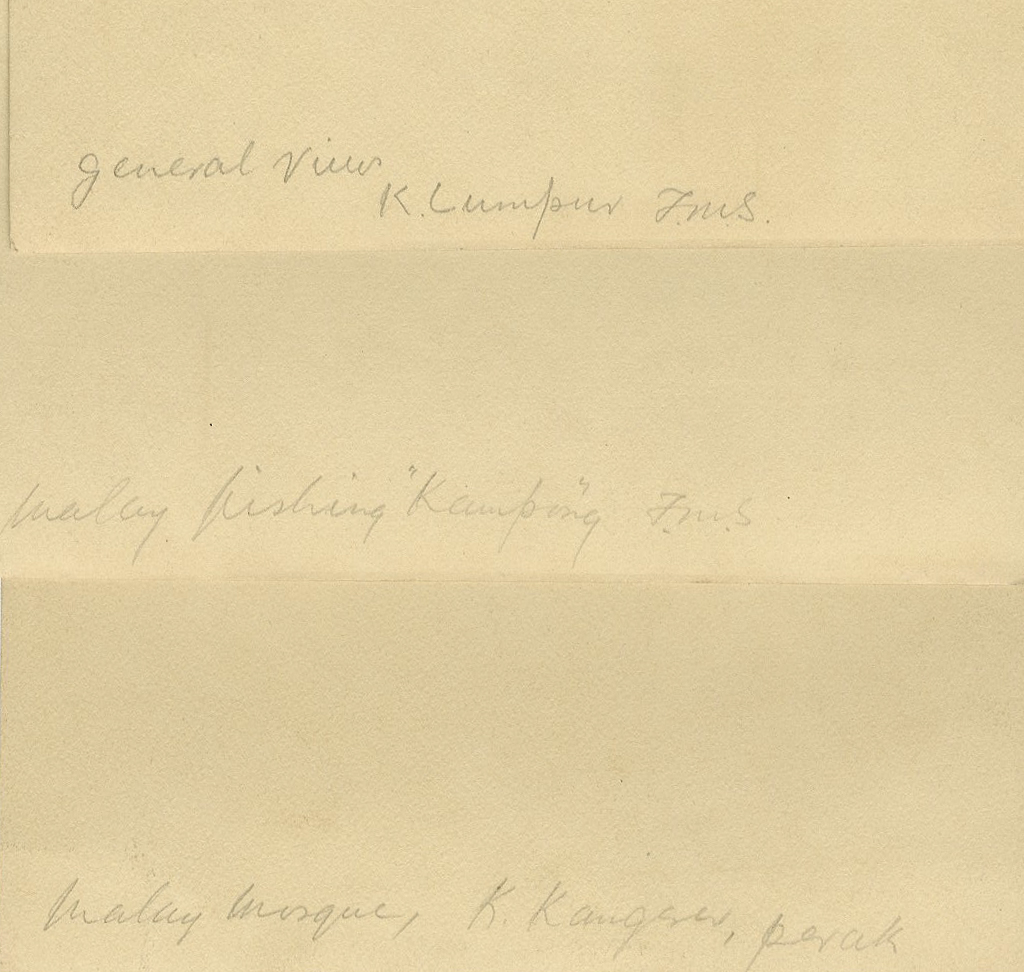 general View
K. Lumpur F.M.S.
Malay fishing "Kampong" F.M.S
Malay Mosque, K. Kangsar, perak